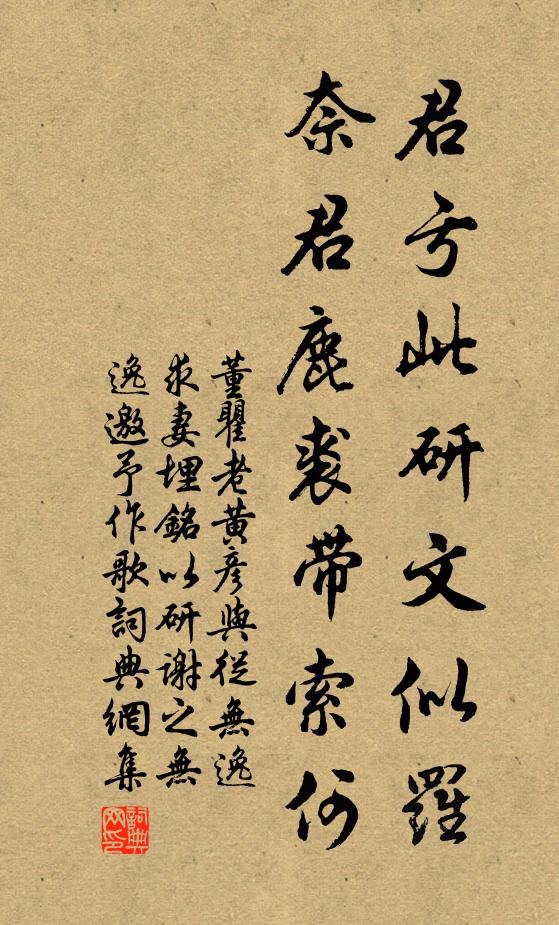 君于此研文似羅
奈君鹿裘帶索何
董瞿老黃彥與從無逸
求妻埋銘以研謝之無
逸邀予作歌詞典網集
詞典網印